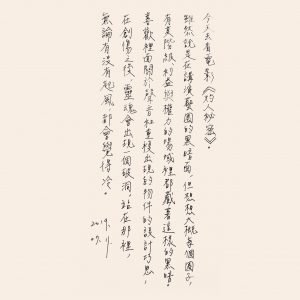 今天去看電影《灼人秘密》。
雖然說是在講演藝圈的黑暗面，但想想大概每個圈子，
有其階級、利益與權力的場域裡都藏著這樣的黑暗。
喜歡裡面關於聲音和重複出現的物件的設計巧思，
在創傷之後，靈魂會出現一個破洞，站在那裡，
無論有沒有起風，都會覺得冷。
2019.